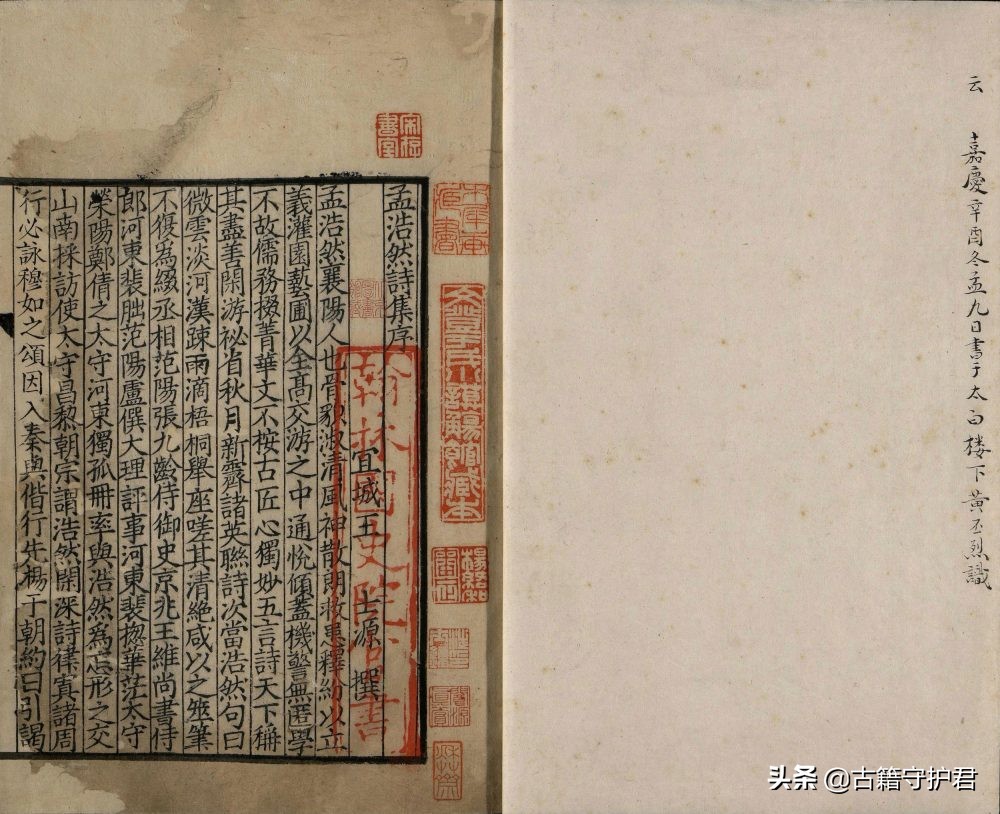 云
嘉慶辛酉冬孟九日書于太白楼下黃丕烈識
宋存書室
孟浩然詩集序
翰林國史院官書
宜城王 士源 撰
孟浩然襄陽人也骨貌淑清風神散朗救患釋紛以立
義灌園藝圃以全髙交游之中通恱傾蓋機警無匿學
不故儒務掇菁華文不桉古匠心獨妙五言詩天下稱
其盡善閑游祕省秋月新霽諸英聯詩次當浩然句曰
微雲淡河漢踈雨滴梧桐舉座嗟其清絶咸以之筆
不復為綴丞相范陽張九齡侍御史京兆王維尚書侍
郎河東裴朏范陽盧僎大理評事河東裴揔華茫太守
榮陽鄭倩之太守河東獨孤冊率與浩然為忘形之交
山南採訪使太守昌黎朝宗謂浩然閑深詩律寘諸周
行必詠穆如之頌因入秦與偕行先楊于朝約日引謁
头条 @古籍守护君